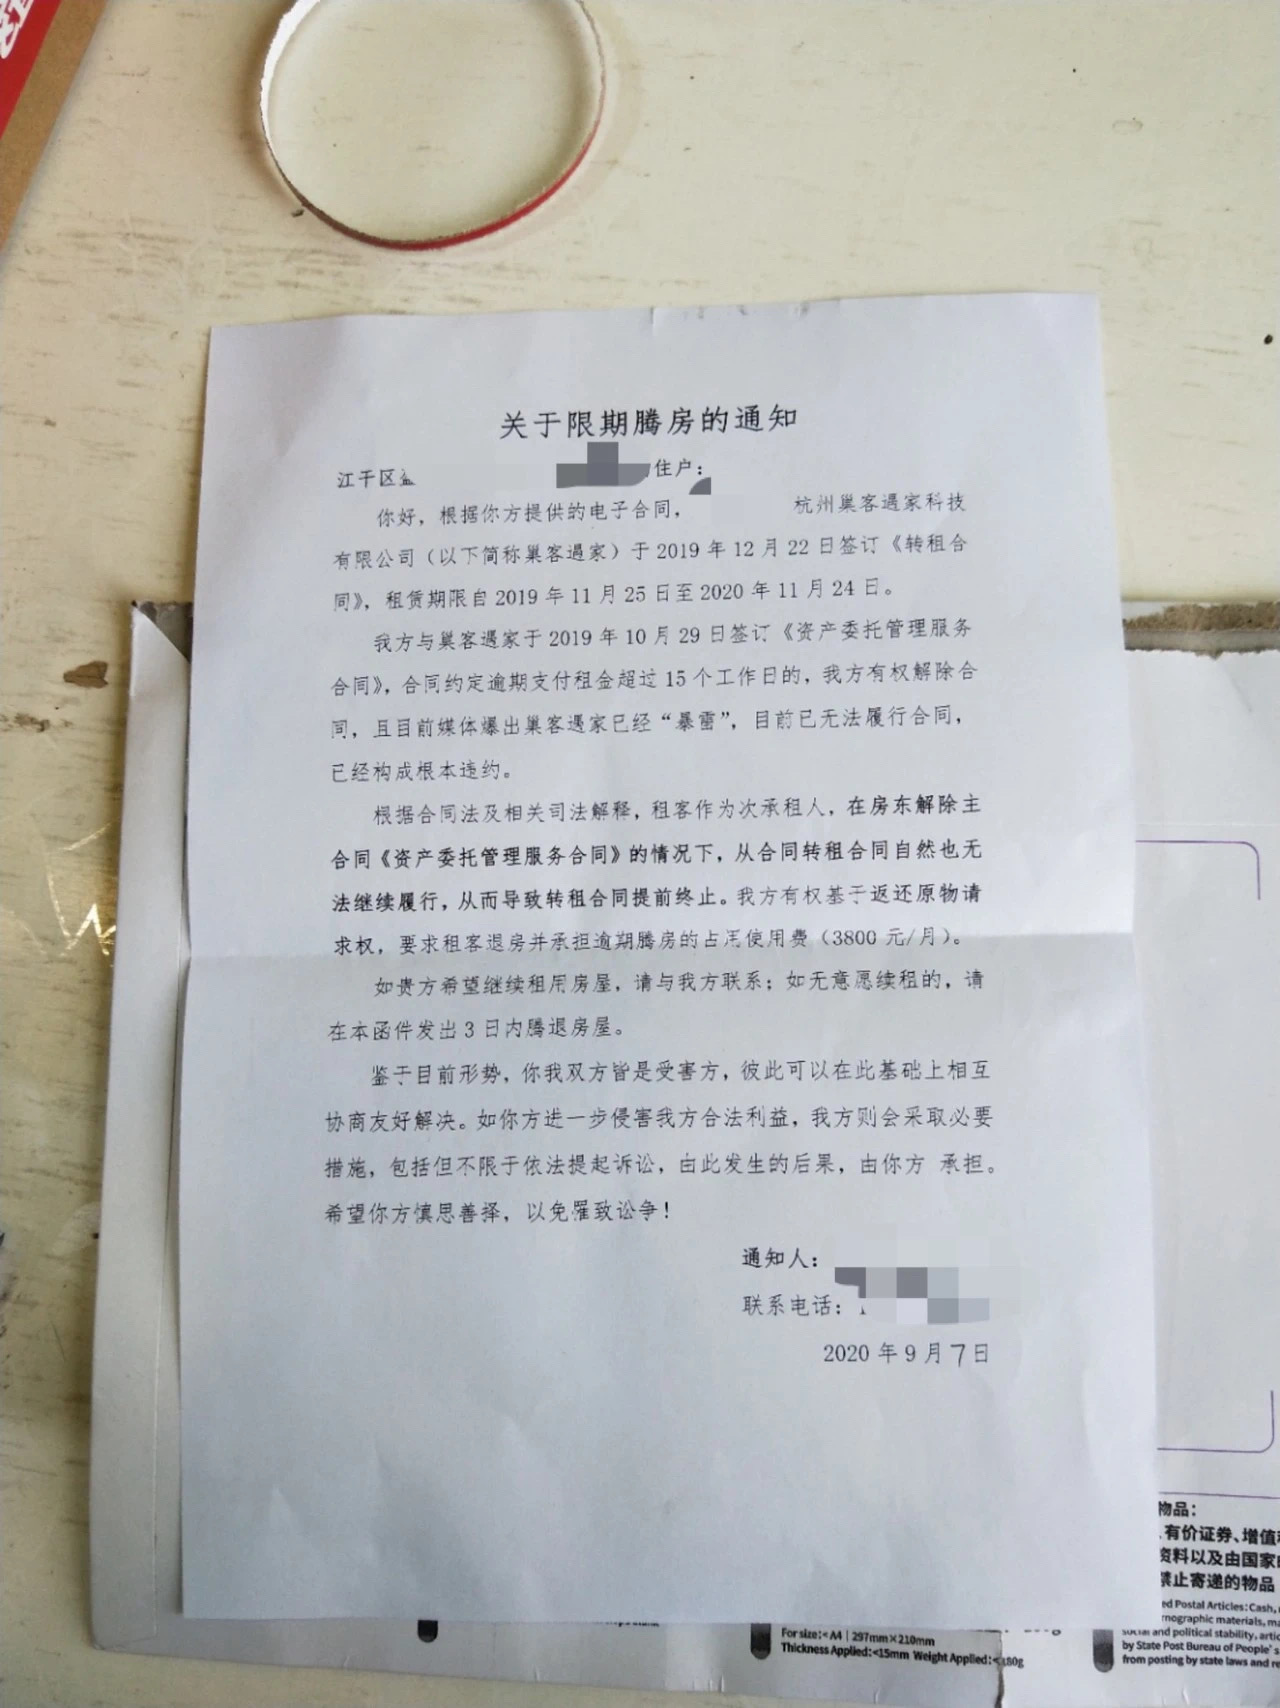 关于限期腾房的通知
江干区
住户：
你好，根据你方提供的电子合同，
杭州巢客遇家科技
有限公司（以下简称巢客遇家）于 2019 年 12 月 22 日签订《转租合
同》，租赁期限自 2019 年 11 月 25 日至 2020 年 11 月 24 日。
我方与巢客遇家于 2019 年 10 月 29 日签订《资产委托管理服务
合同》，合同约定逾期支付租金超过 15 个工作日的，我方有权解除合
同，且目前媒体爆出巢客遇家已经“暴雷”，目前已无法履行合同，
已经构成根本违约。
根据合同法及相关司法解释，租客作为次承租人，在房东解除主
合同《资产委托管理服务合同》的情况下，从合同转租合同自然也无
法继续履行，从而导致转租合同提前终止。我方有权基于返还原物请
求权，要求租客退房并承担逾期腾房的占用使用费（3800 元/月）。
如贵方希望继续租用房屋，请与我方联系；如无意愿续租的，请
在本函件发出 3 日内腾退房屋。
鉴于目前形势，你我双方皆是受害方，彼此可以在此基础上相互
协商友好解决。如你方进一步侵害我方合法利益，我方则会采取必要
措施，包括但不限于依法提起诉讼，由此发生的后果，由你方 承担。
希望你方慎思善择，以免罹致讼争！
通知人：
联系电话：
2020 年 9 月 7 日
物品：
有价证券、增值
资料以及由国家
禁止寄递的物品
ed Postal Articles: Cash,
rnographic materials, ma
social and political stability, artic
by State Post Bureau of People's
from posting by state laws and re
For size: < A4 | 297mm×210mm
Thickness Applied: <15mm Weight Applied: <